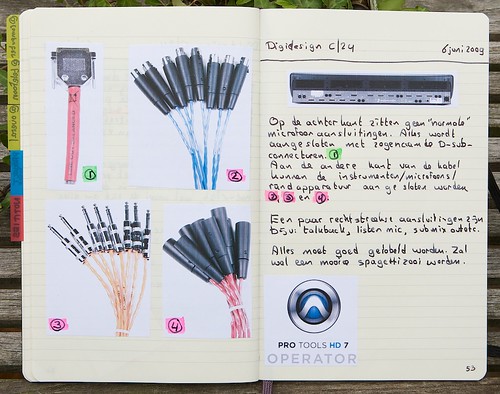 ①
②
③
④
Digidesign C|24
6 juni 2009
Op de achterkant zitten geen "normale"
microfoon aansluitingen. Alles wordt
aangesloten met zogenaamde D-sub-
connectoren. ①
Aan de andere kant van de kabel
kunnen de instrumenten/microfoons/
randapparatuur aangesloten worden
②, ③ en ④.
Een paar rechtstreekse aansluitingen zijn
bijv: talkback, listen mic, submix outputs.
Alles moet goed gelabeld worden. Zal
wel een mooie spagettizooi worden.
PRO TOOLS HD 7
OPERATOR
53